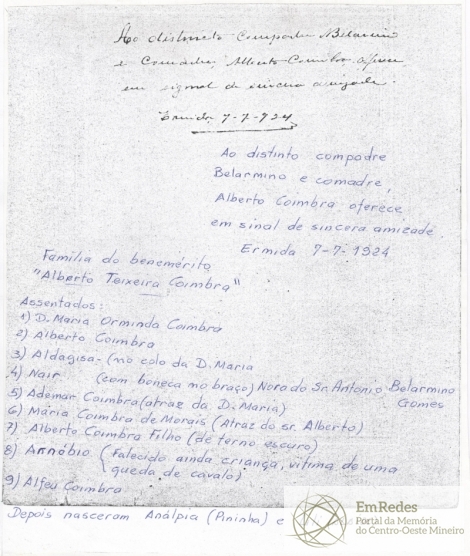 Ao distincto compadre Belarmino
e Comadre, Alberto Coimbra offerece
em signal de sincera amizade.
Ermida 7-7-924
Ao distinto compadre
Belarmino e comadre,
Alberto Coimbra oferece
em sinal de sincera amizade.
Ermida 7-7-1924
Família do benemérito
"Alberto Teixeira Coimbra"
Assentados:
1) D. Maria Orminda Coimbra
2) Alberto Coimbra
3) Aldagisa- (no colo da D. Maria
4) Nair (com boneca no braço) Nora do Sr. Antonio Belarmino Gomes
5) Ademar Coimbra (atraz da D. Maria)
6) Maria Coimbra de Morais (Atraz do sr. Alberto)
7) Alberto Coimbra Filho (de terno escuro)
8) Annóbio (falecido ainda criança, vítima de uma
queda de cavalo)
9) Alfeu Coimbra
Depois nasceram Análpia (Pininha) e
EmRedes
Portal da Memória
do Centro-Oeste Mineiro